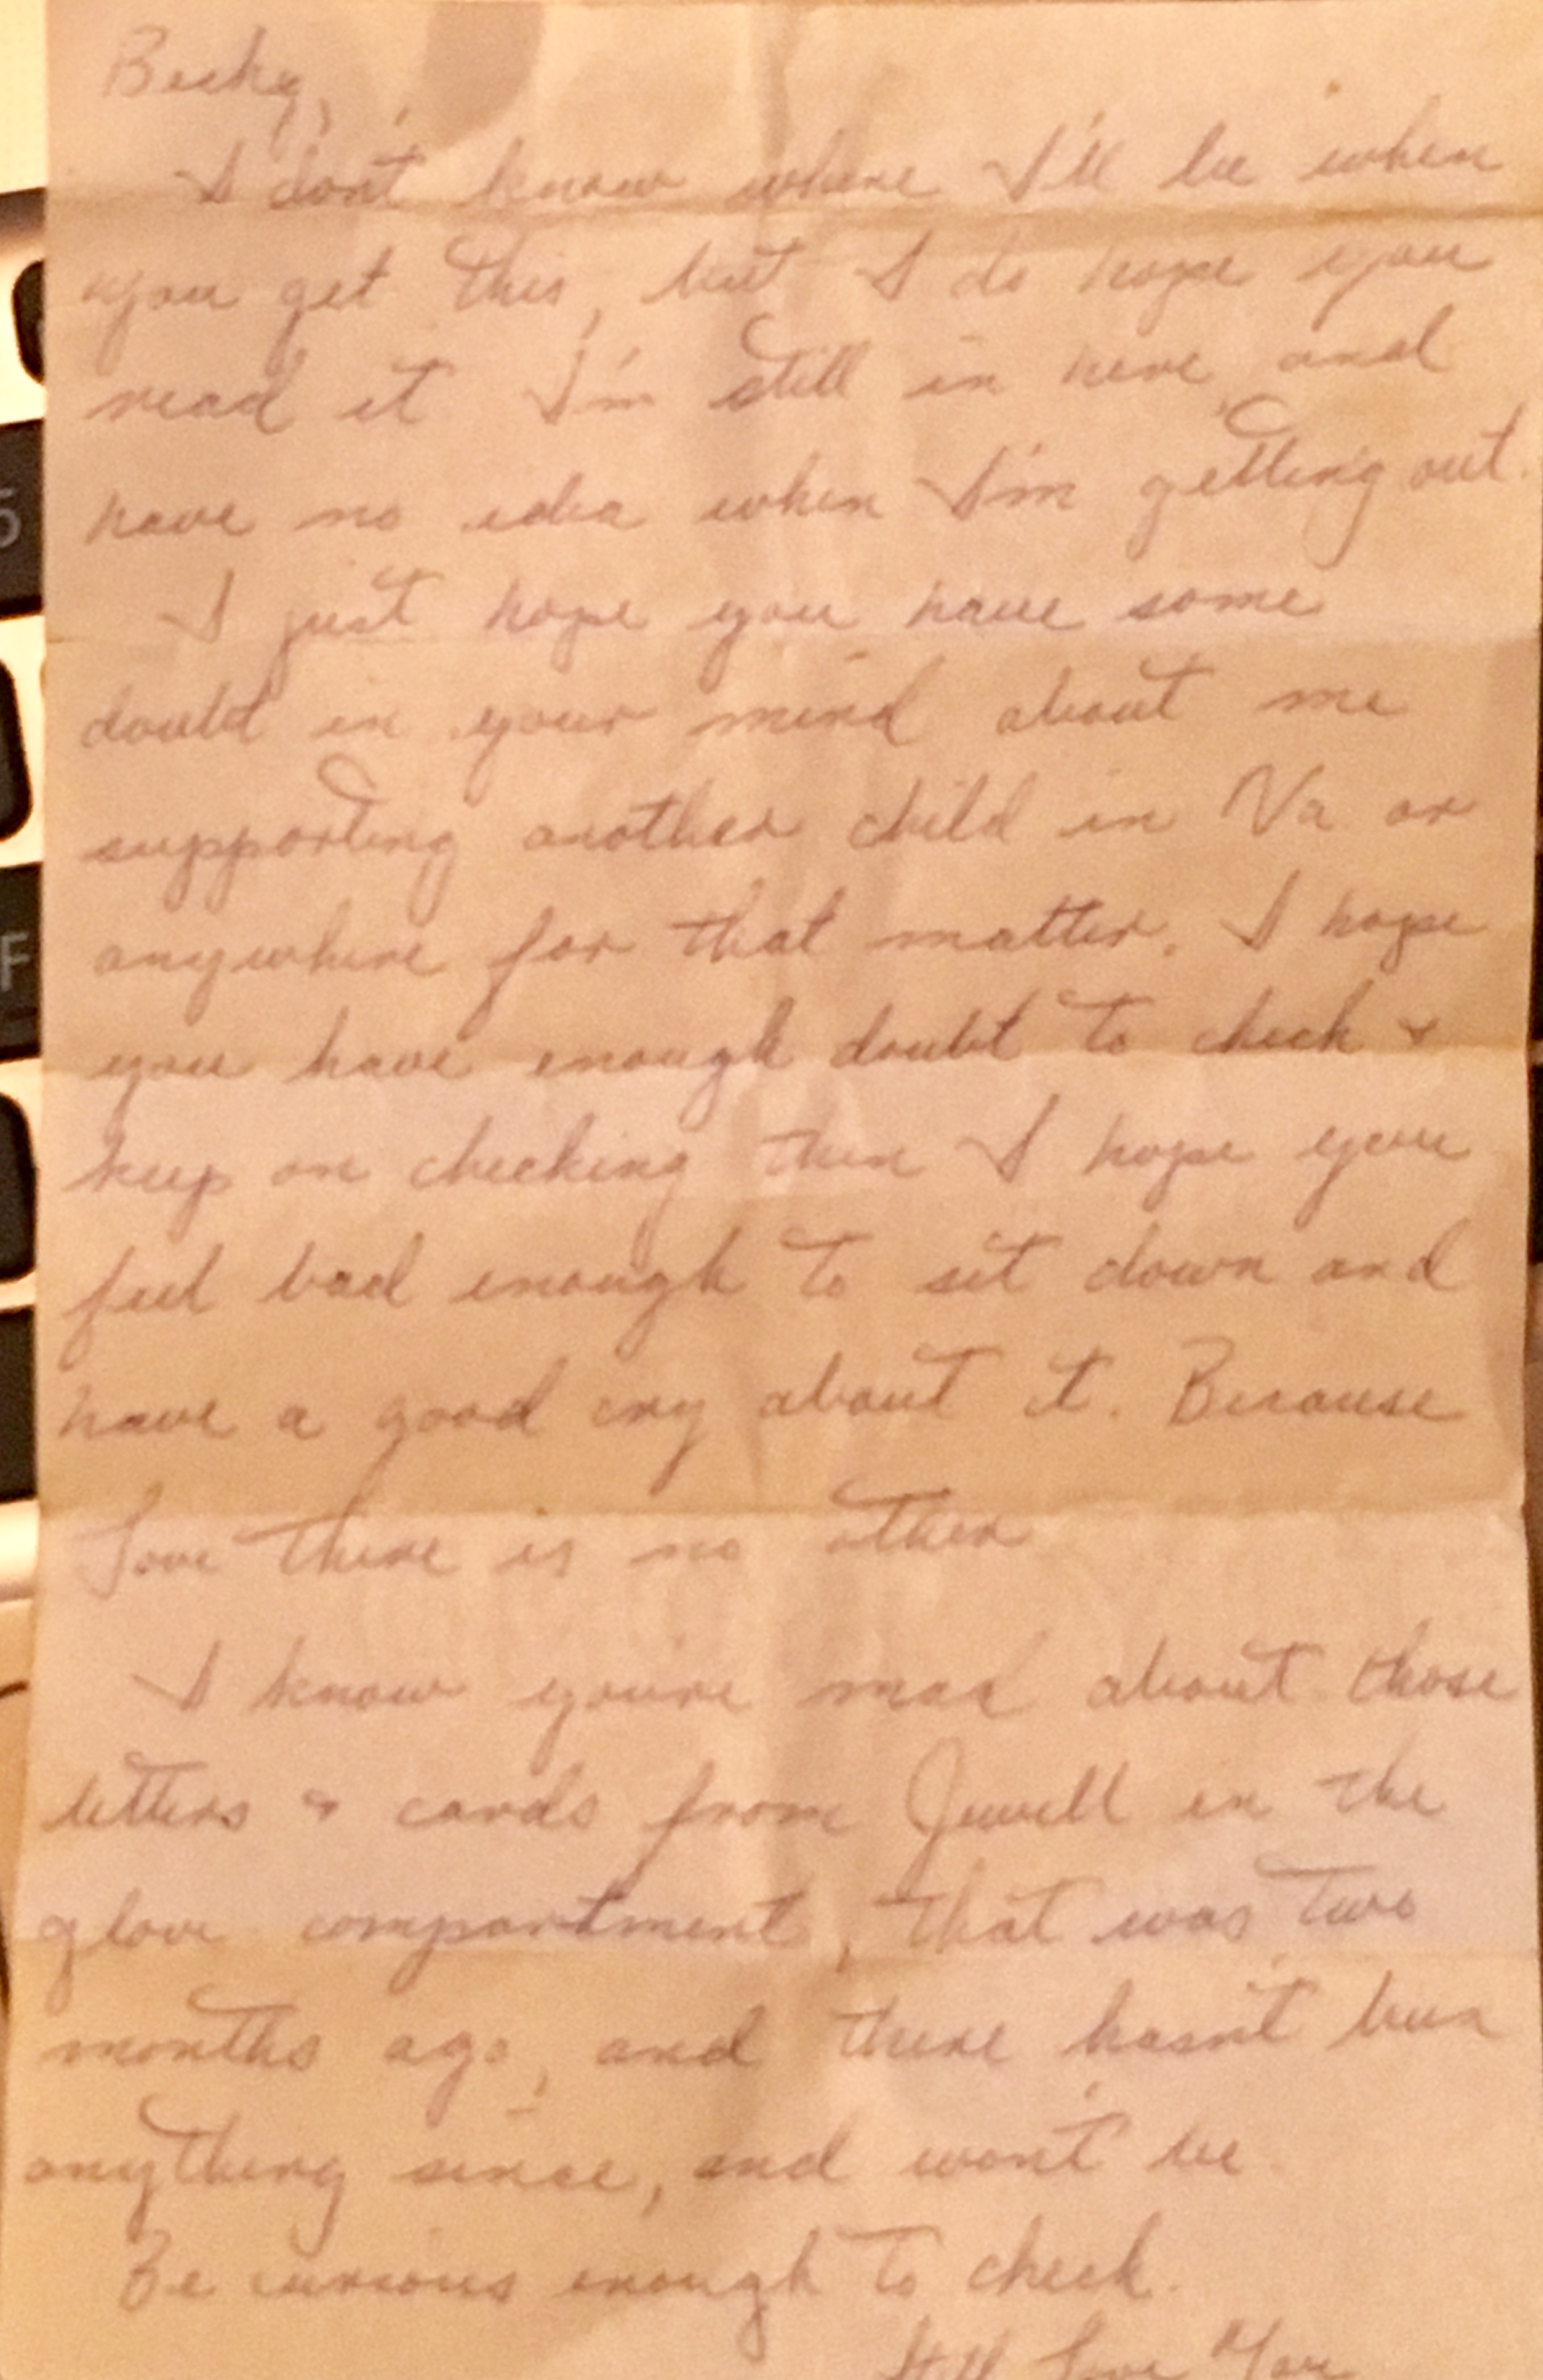 Becky,
I don't know where I'll be when
you get this, but I do hope you
read it. I'm still in here, and
have no idea when I'm getting out.
I just hope you have some
doubt in your mind about me
supporting another child in Va or
anywhere for that matter. I hope
you have enough doubt to check &
keep on checking then I hope you
feel bad enough to sit down and
have a good cry about it. Because
Love there is no other
I know you're mad about those
letters & cards from Jewell in the
glove compartment, that was two
months ago, and there hasn't been
anything since, and won't be.
Be curious enough to check.
Still Love You
5
F